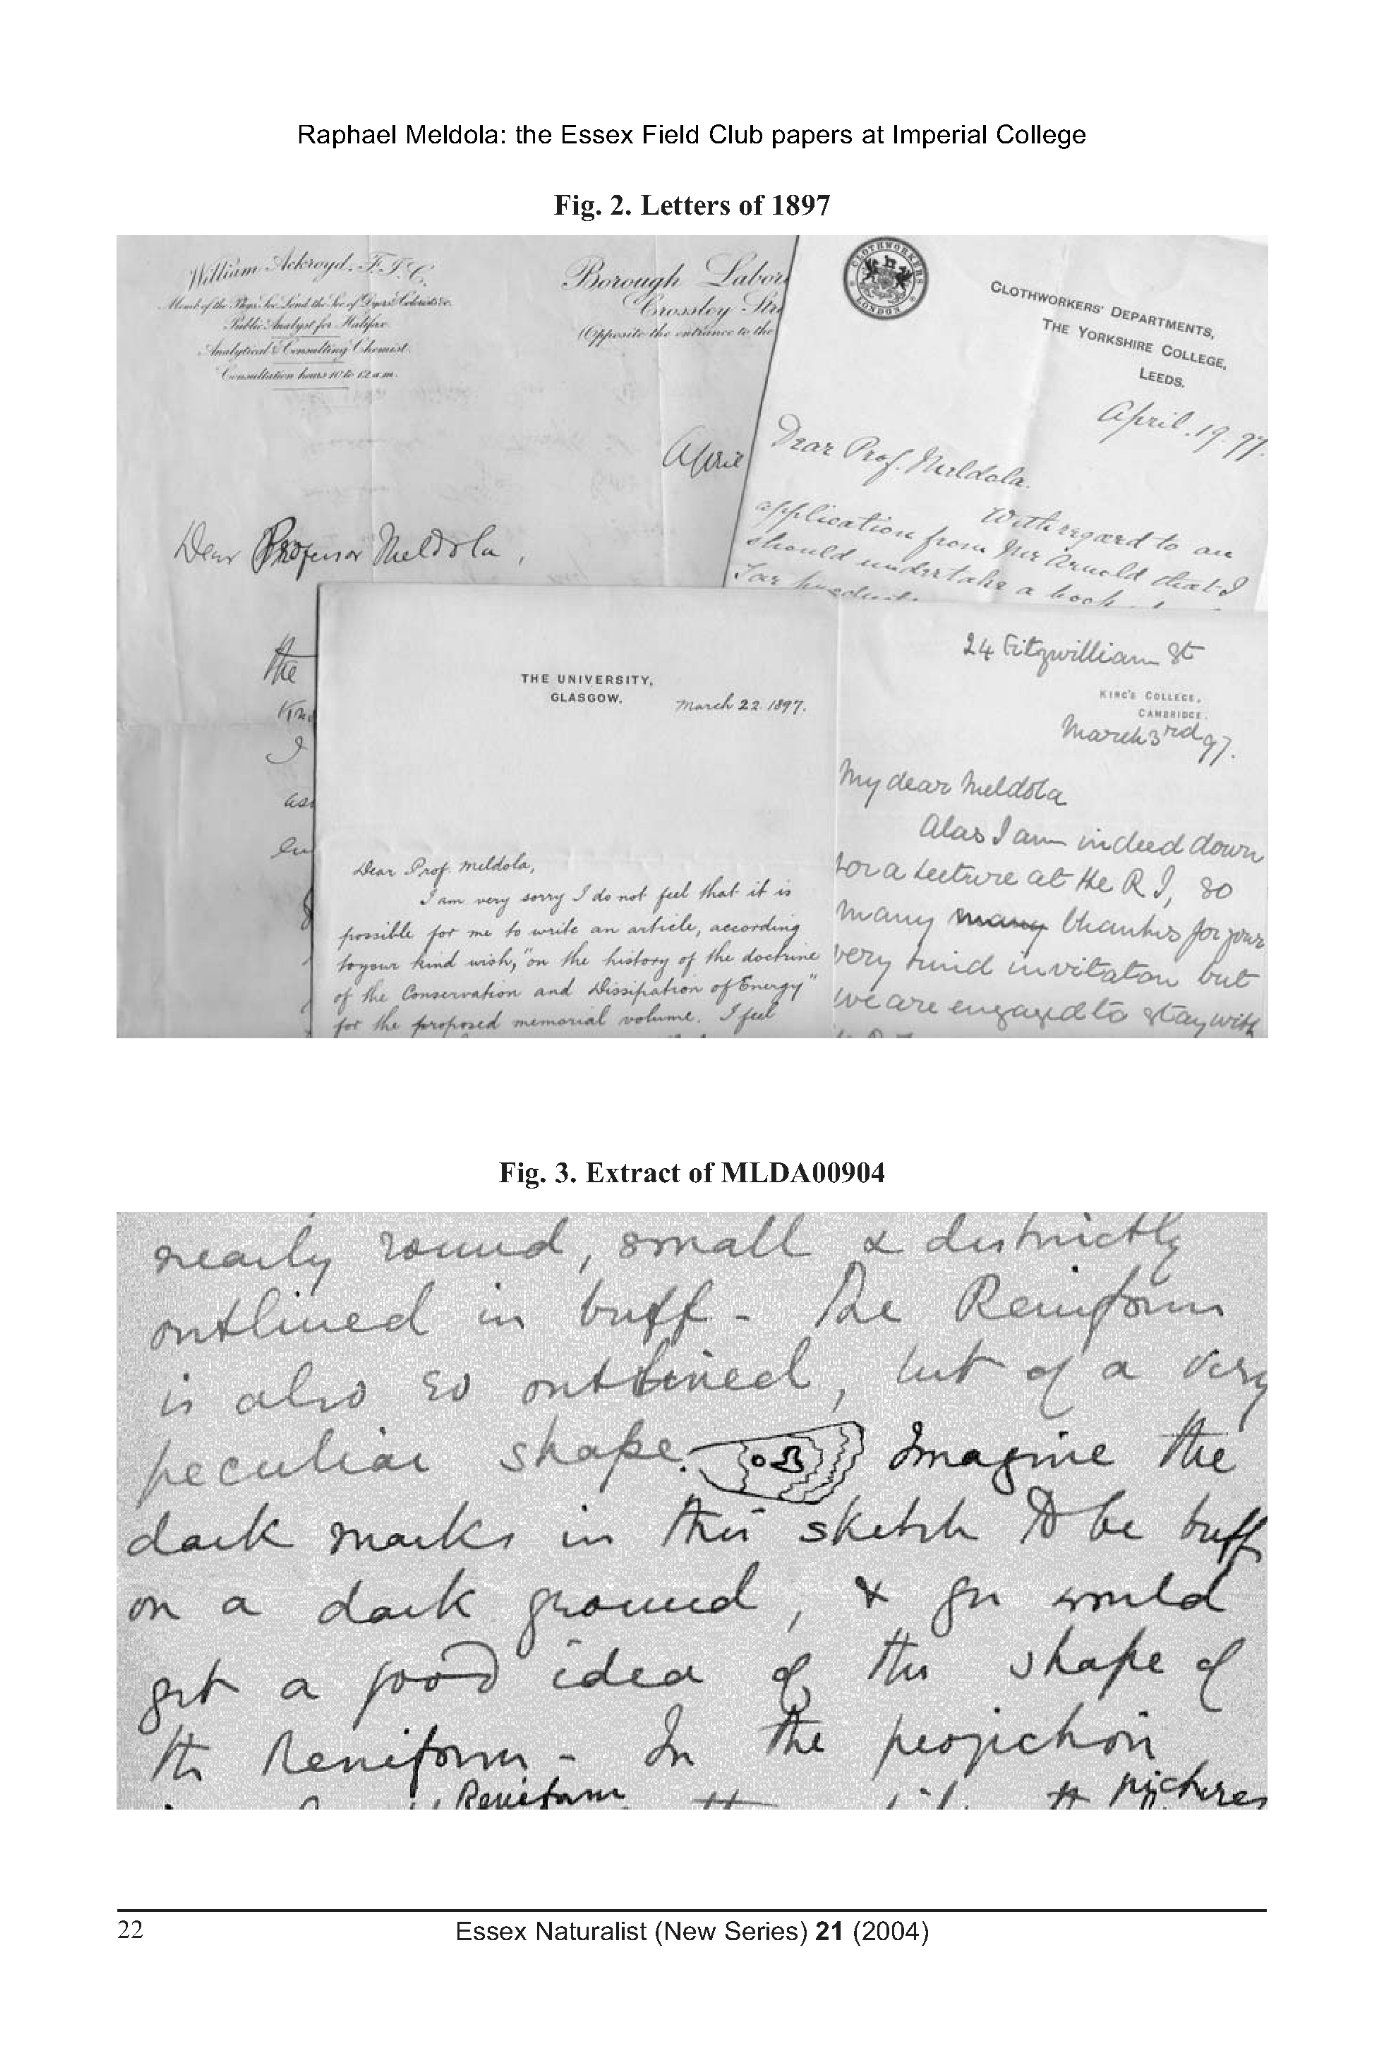 Raphael Meldola: the Essex Field Club papers at Imperial College
Fig. 2. Letters of 1897
William Ackroyd, F.I.C.
Public Analyst for Halifax
Analytical & Consulting Chemist.
Consultation hours 10 to 12 a.m.
Borough Labor
Crossley Str
(Opposite the entrance to the
April
Dear Professor Meldola,
the
I
as
CLOTHWORKERS
LONDON
CLOTHWORKERS' DEPARTMENTS,
THE YORKSHIRE COLLEGE,
LEEDS.
April. 19. 97.
Dear Prof. Meldola.
With regard to an
application from Mr Arnold that I
should undertake a book
THE UNIVERSITY,
GLASGOW.
March 22. 1897.
Dear Prof. Meldola,
I am very sorry I do not feel that it is
possible for me to write an article, according
to your kind wish, "on the history of the doctrine
of the Conservation and Dissipation of Energy"
for the proposed memorial volume. I feel
24 Fitzwilliam St
KING'S COLLEGE,
CAMBRIDGE.
March 3rd 97.
My dear Meldola
Alas I am indeed down
for a Lecture at the R I, so
many many thanks for your
very kind invitation but
we are engaged to stay with
Fig. 3. Extract of MLDA00904
nearly round, small & distinctly
outlined in buff - The Reniform
is also so outlined, but of a very
peculiar shape. Imagine the
dark marks in this sketch to be buff
on a dark ground, & you would
get a good idea of the shape of
the Reniform - In the projection
Reniform the pictures
22
Essex Naturalist (New Series) 21 (2004)